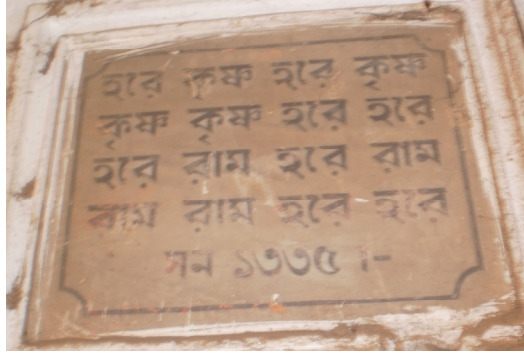 হরে কৃষ্ণ হরে কৃষ্ণ
কৃষ্ণ কৃষ্ণ হরে হরে
হরে রাম হরে রাম
রাম রাম হরে হরে
সন ১৩৩৫ ।-